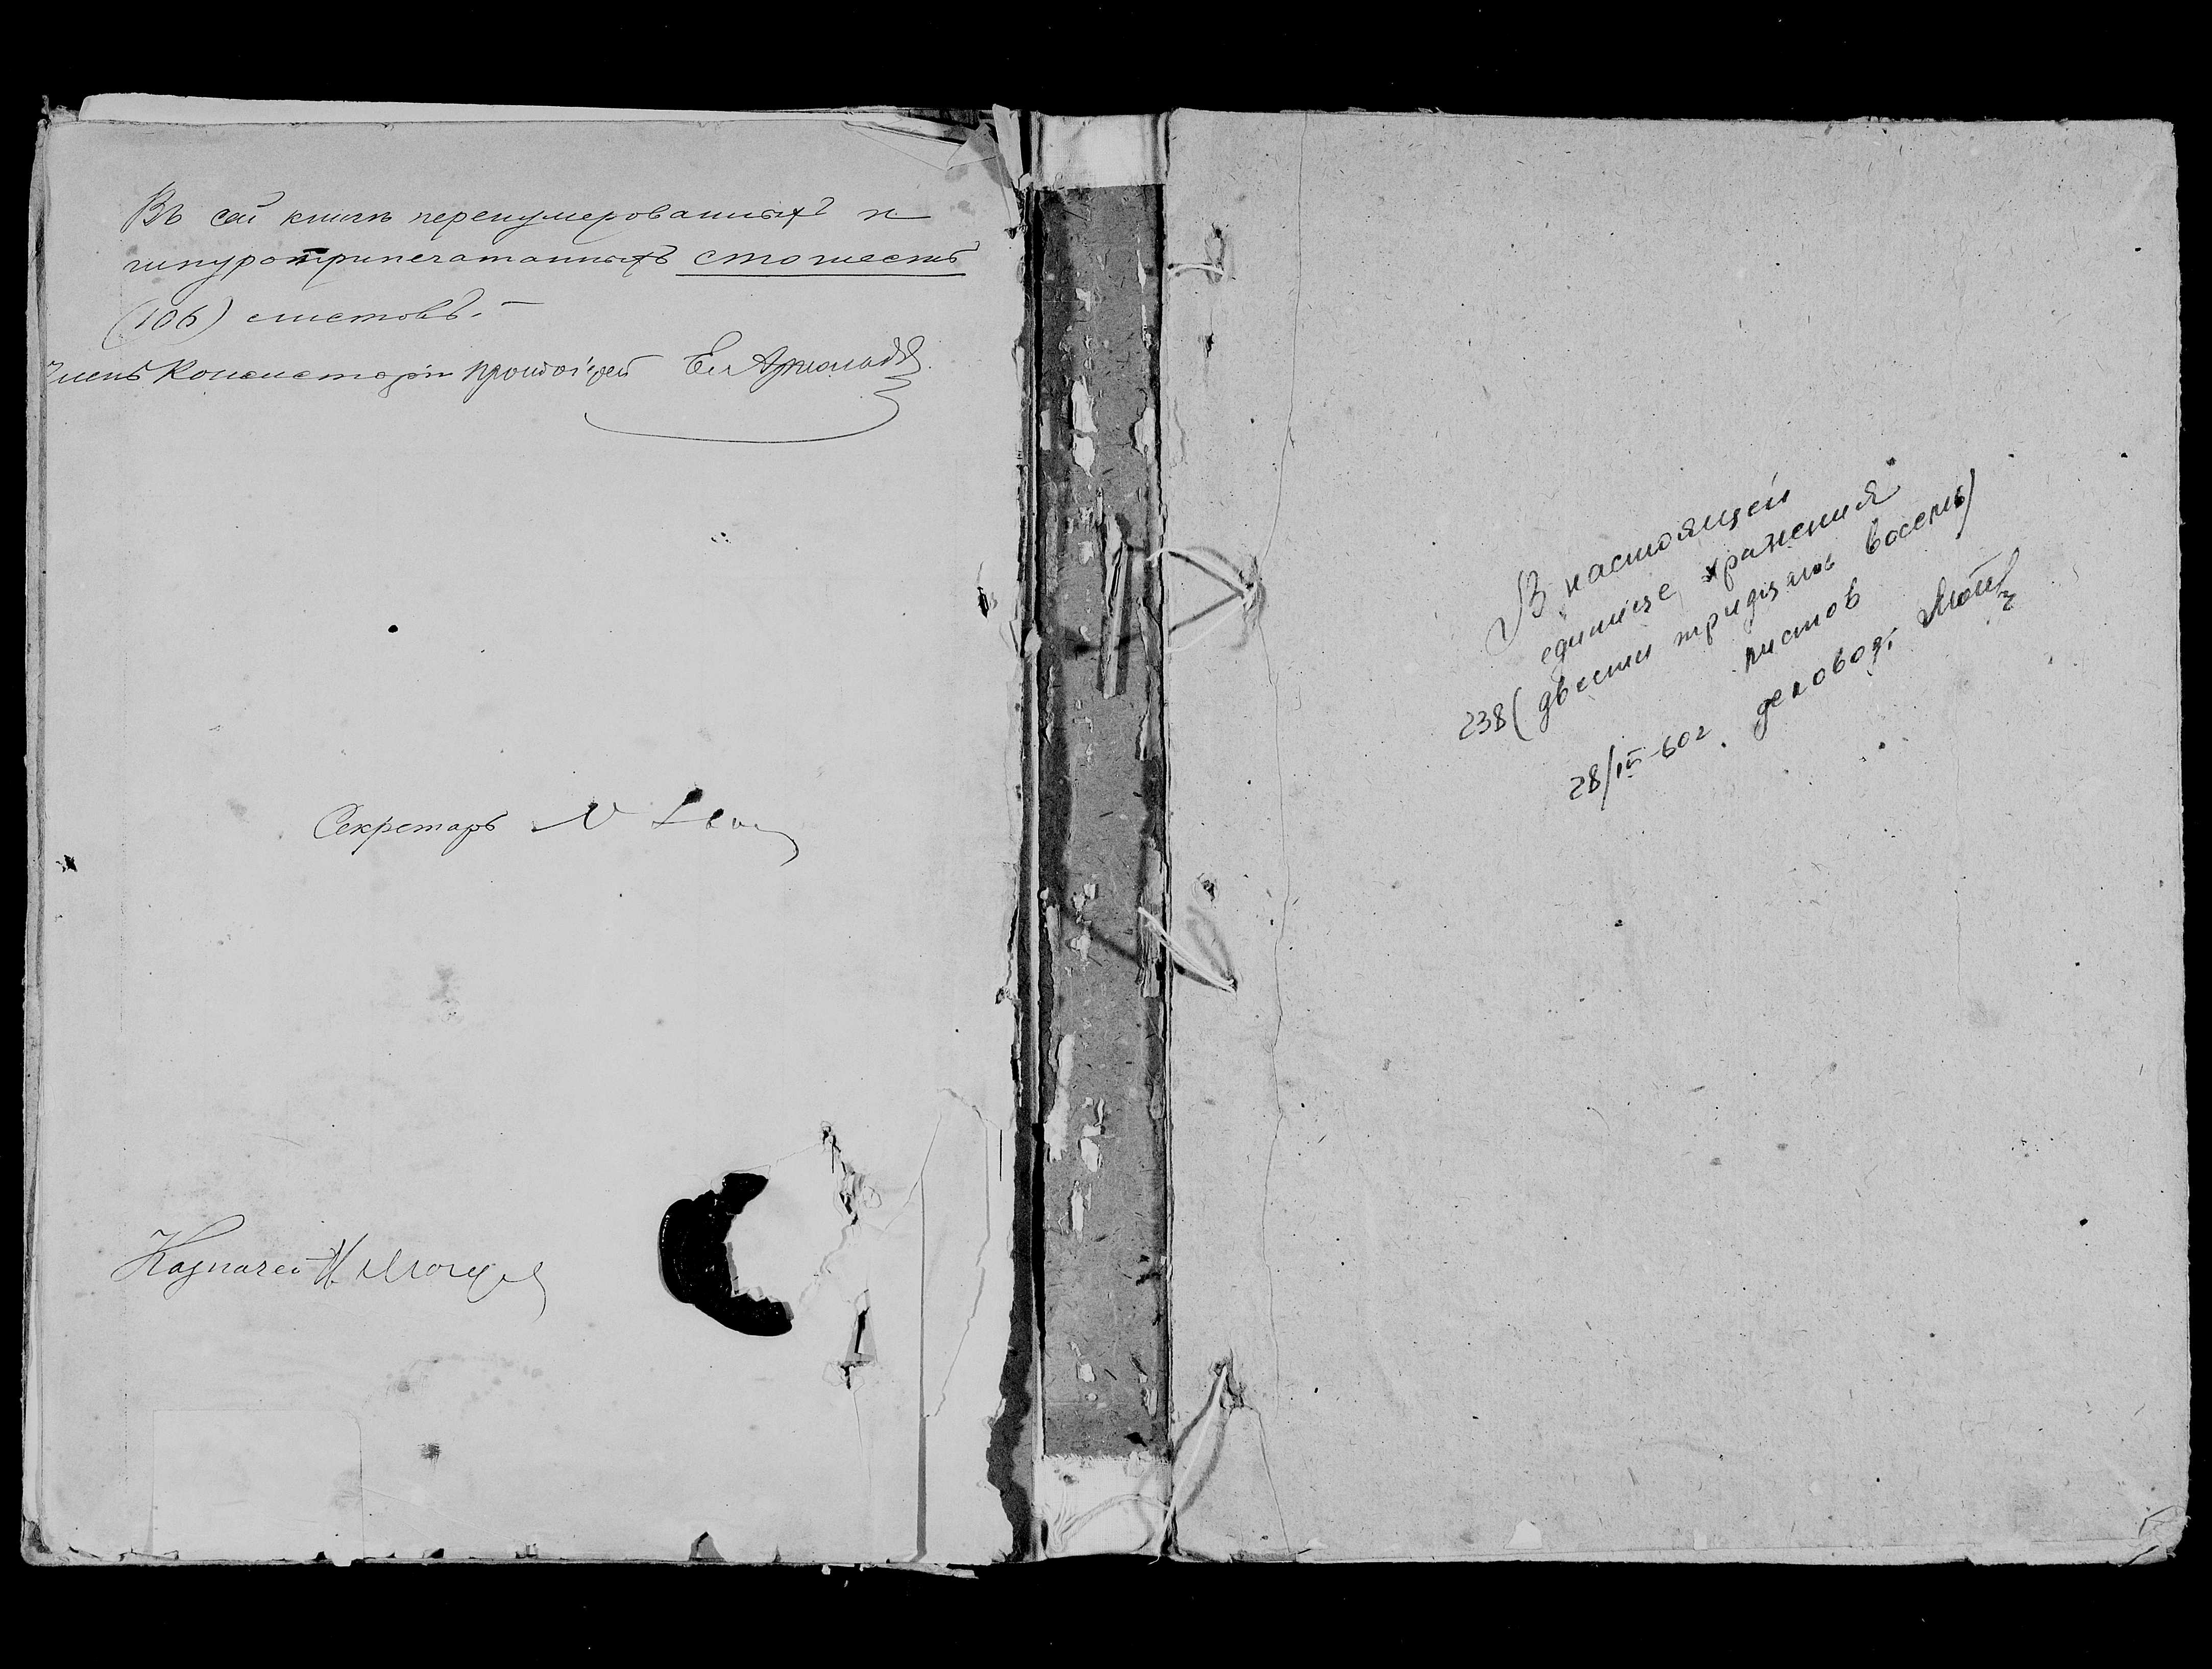 Въ сей книгѣ перенумерованныхъ и
шнуроприпечатанныхъ стошесть
(106) листовъ.-
Членъ Консисторіи Протоіерей
Секретарь
Казначей Н.
В настоящей
единице хранения
238 (двести тридцать восемь)
листов
28/III-60г. деловод.